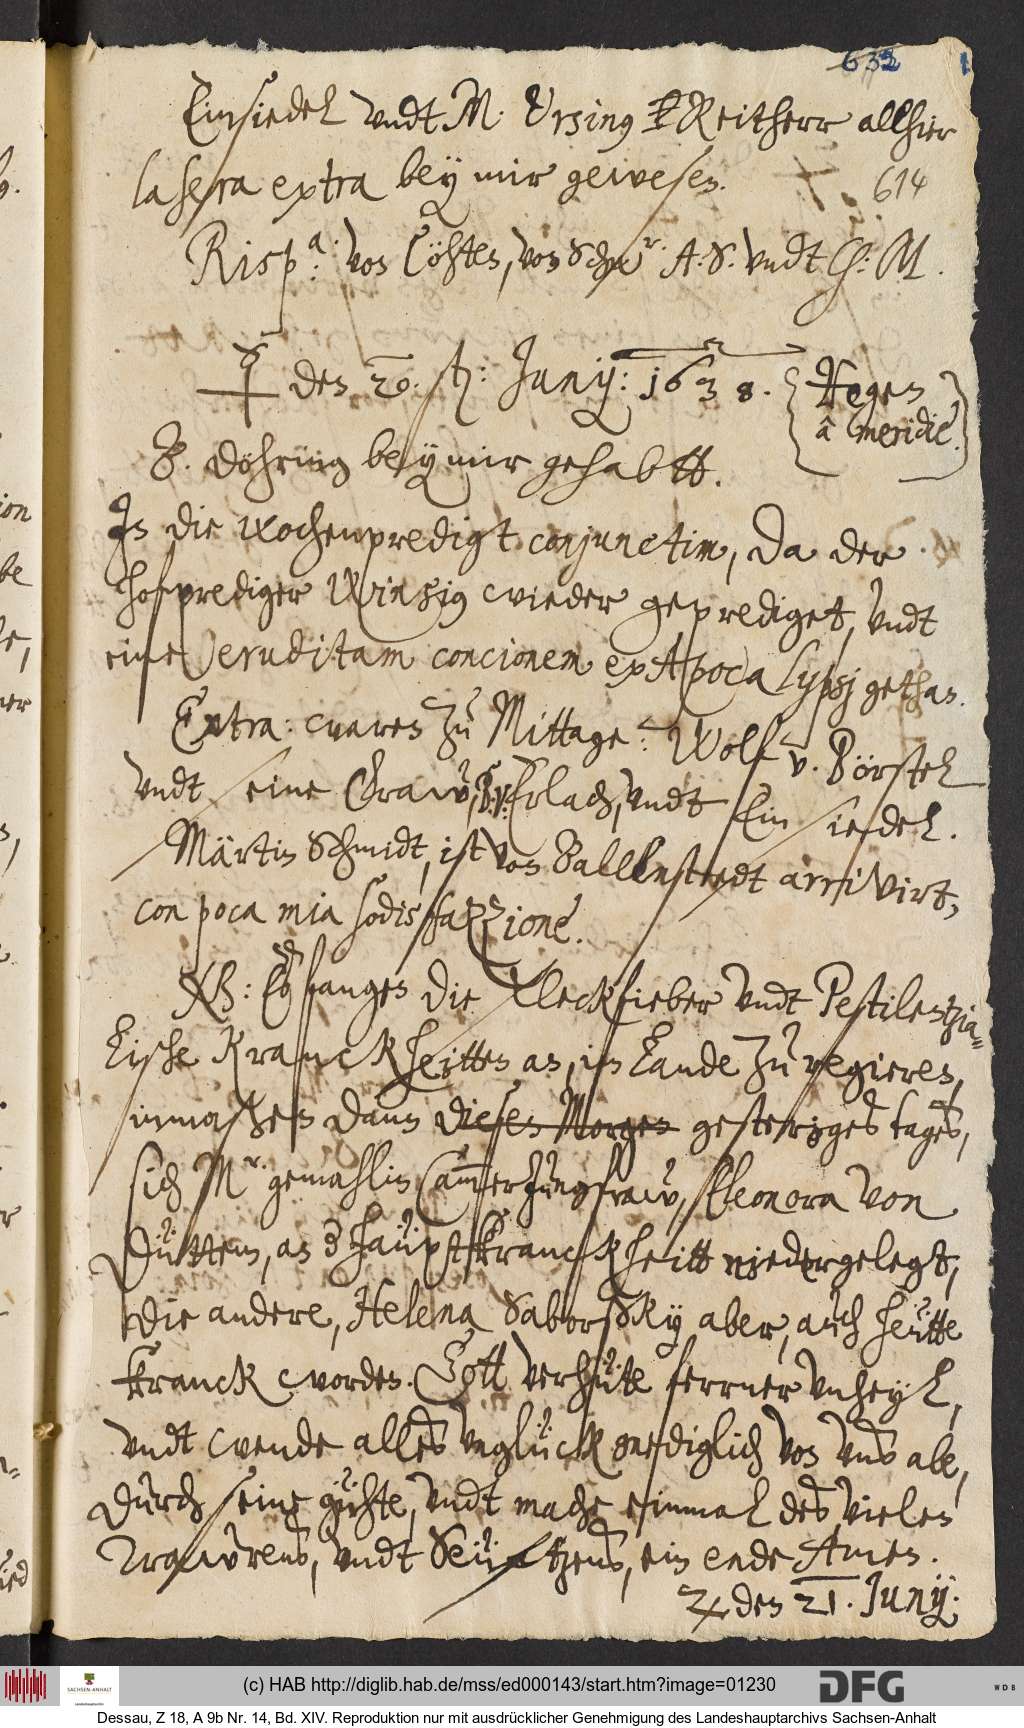 632 1
Einsiedel vndt M. Ursing Reitherr allhier
la sera extra bey mir gewesen.
614
Risp.a: von Cöhten, von Schwr. A: S. vndt H: M.
☿ den 20. Junij: 1638.
{Regen
â meridie.}
Döhring bey mir gehabtt.
In die wochenpredigt conjunctim, da der
hofprediger Winsig wieder geprediget, vndt
eine eruditam concionem ex Apocalypsj gethan.
Extra: waren zu Mittage: Wolf v. Börstel
vndt seine Fraw, B. v. Erlach, vndt Einsiedel.
Märtin Schmidt, ist von Ballenstedt arrivirt,
con poca mia sodisfazzione.
NB: Es fangen die Fleckfieber vndt Pestilentzia-
lische Kranckheitten an, im Lande zu regieren,
inmaßen dann diesen Morgen gesteriges tages,
sich Mr. gemahlin Cammerjungfraw, Eleonora von
Ditten, an haüptkranckheitt niedergelegt,
die andere, Helena Saborsky aber, auch heütte
kranck worden. Gott verhüte ferrner vnheyl,
vndt wende alles vnglück gnediglich von vns abe,
durch seine gühte, vndt mache einmal des vielen
trawrens, vndt Seüftzens, ein ende Amen.
♃ den 21. Junij.
(c) HAB http://diglib.hab.de/mss/ed000143/start.htm?image=01230
SACHSEN-ANHALT
DFG
WDB
Dessau, Z 18, A 9b Nr. 14, Bd. XIV. Reproduktion nur mit ausdrücklicher Genehmigung des Landeshauptarchivs Sachsen-Anhalt